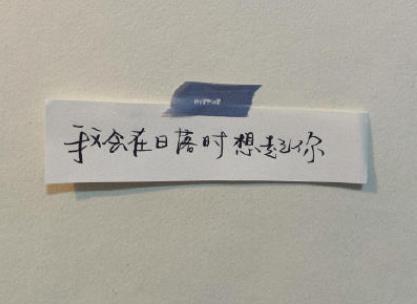 我会在日落时想起你